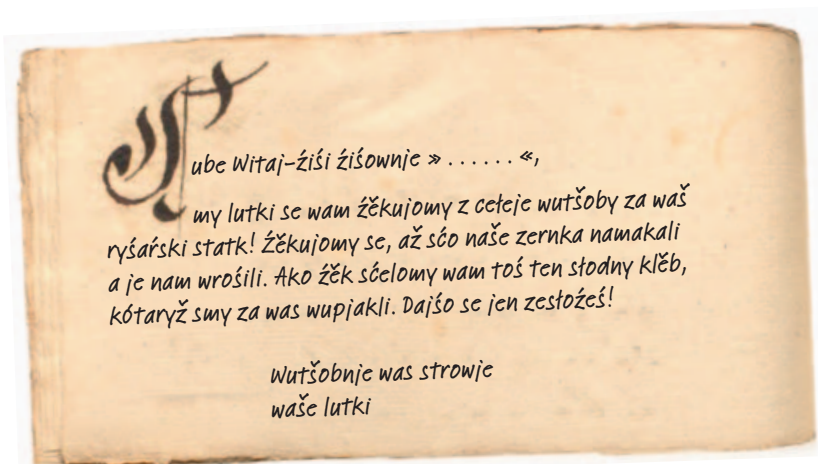 Lube Witaj-źiśi źiśownje » . . . . . . «,
my lutki se wam źěkujomy z cełeje wutšoby za waš
ryśaŕski statk! Źěkujomy se, až sćo naše zernka namakali
a je nam wrośili. Ako źěk sćelomy wam toś ten słodny klěb,
kótaryž smy za was wupjakli. Dajśo se jen zesłoźeś!
Wutšobnje was strowje
waše lutki